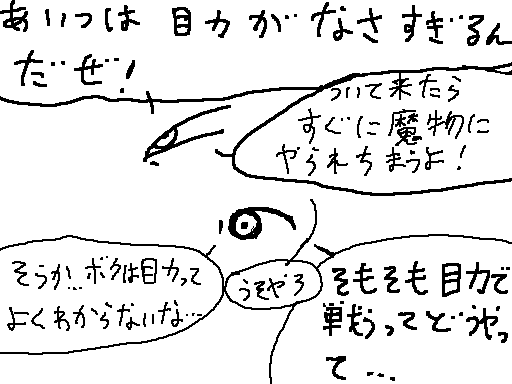 あいつは目力がなさすぎるん
だぜ!
ついて来たら
すぐに魔物に
やられちまうよ!
そうか…ボクは目力って
よくわからないな…
うそやろ
そもそも目力で
戦うってどうやっ
て…